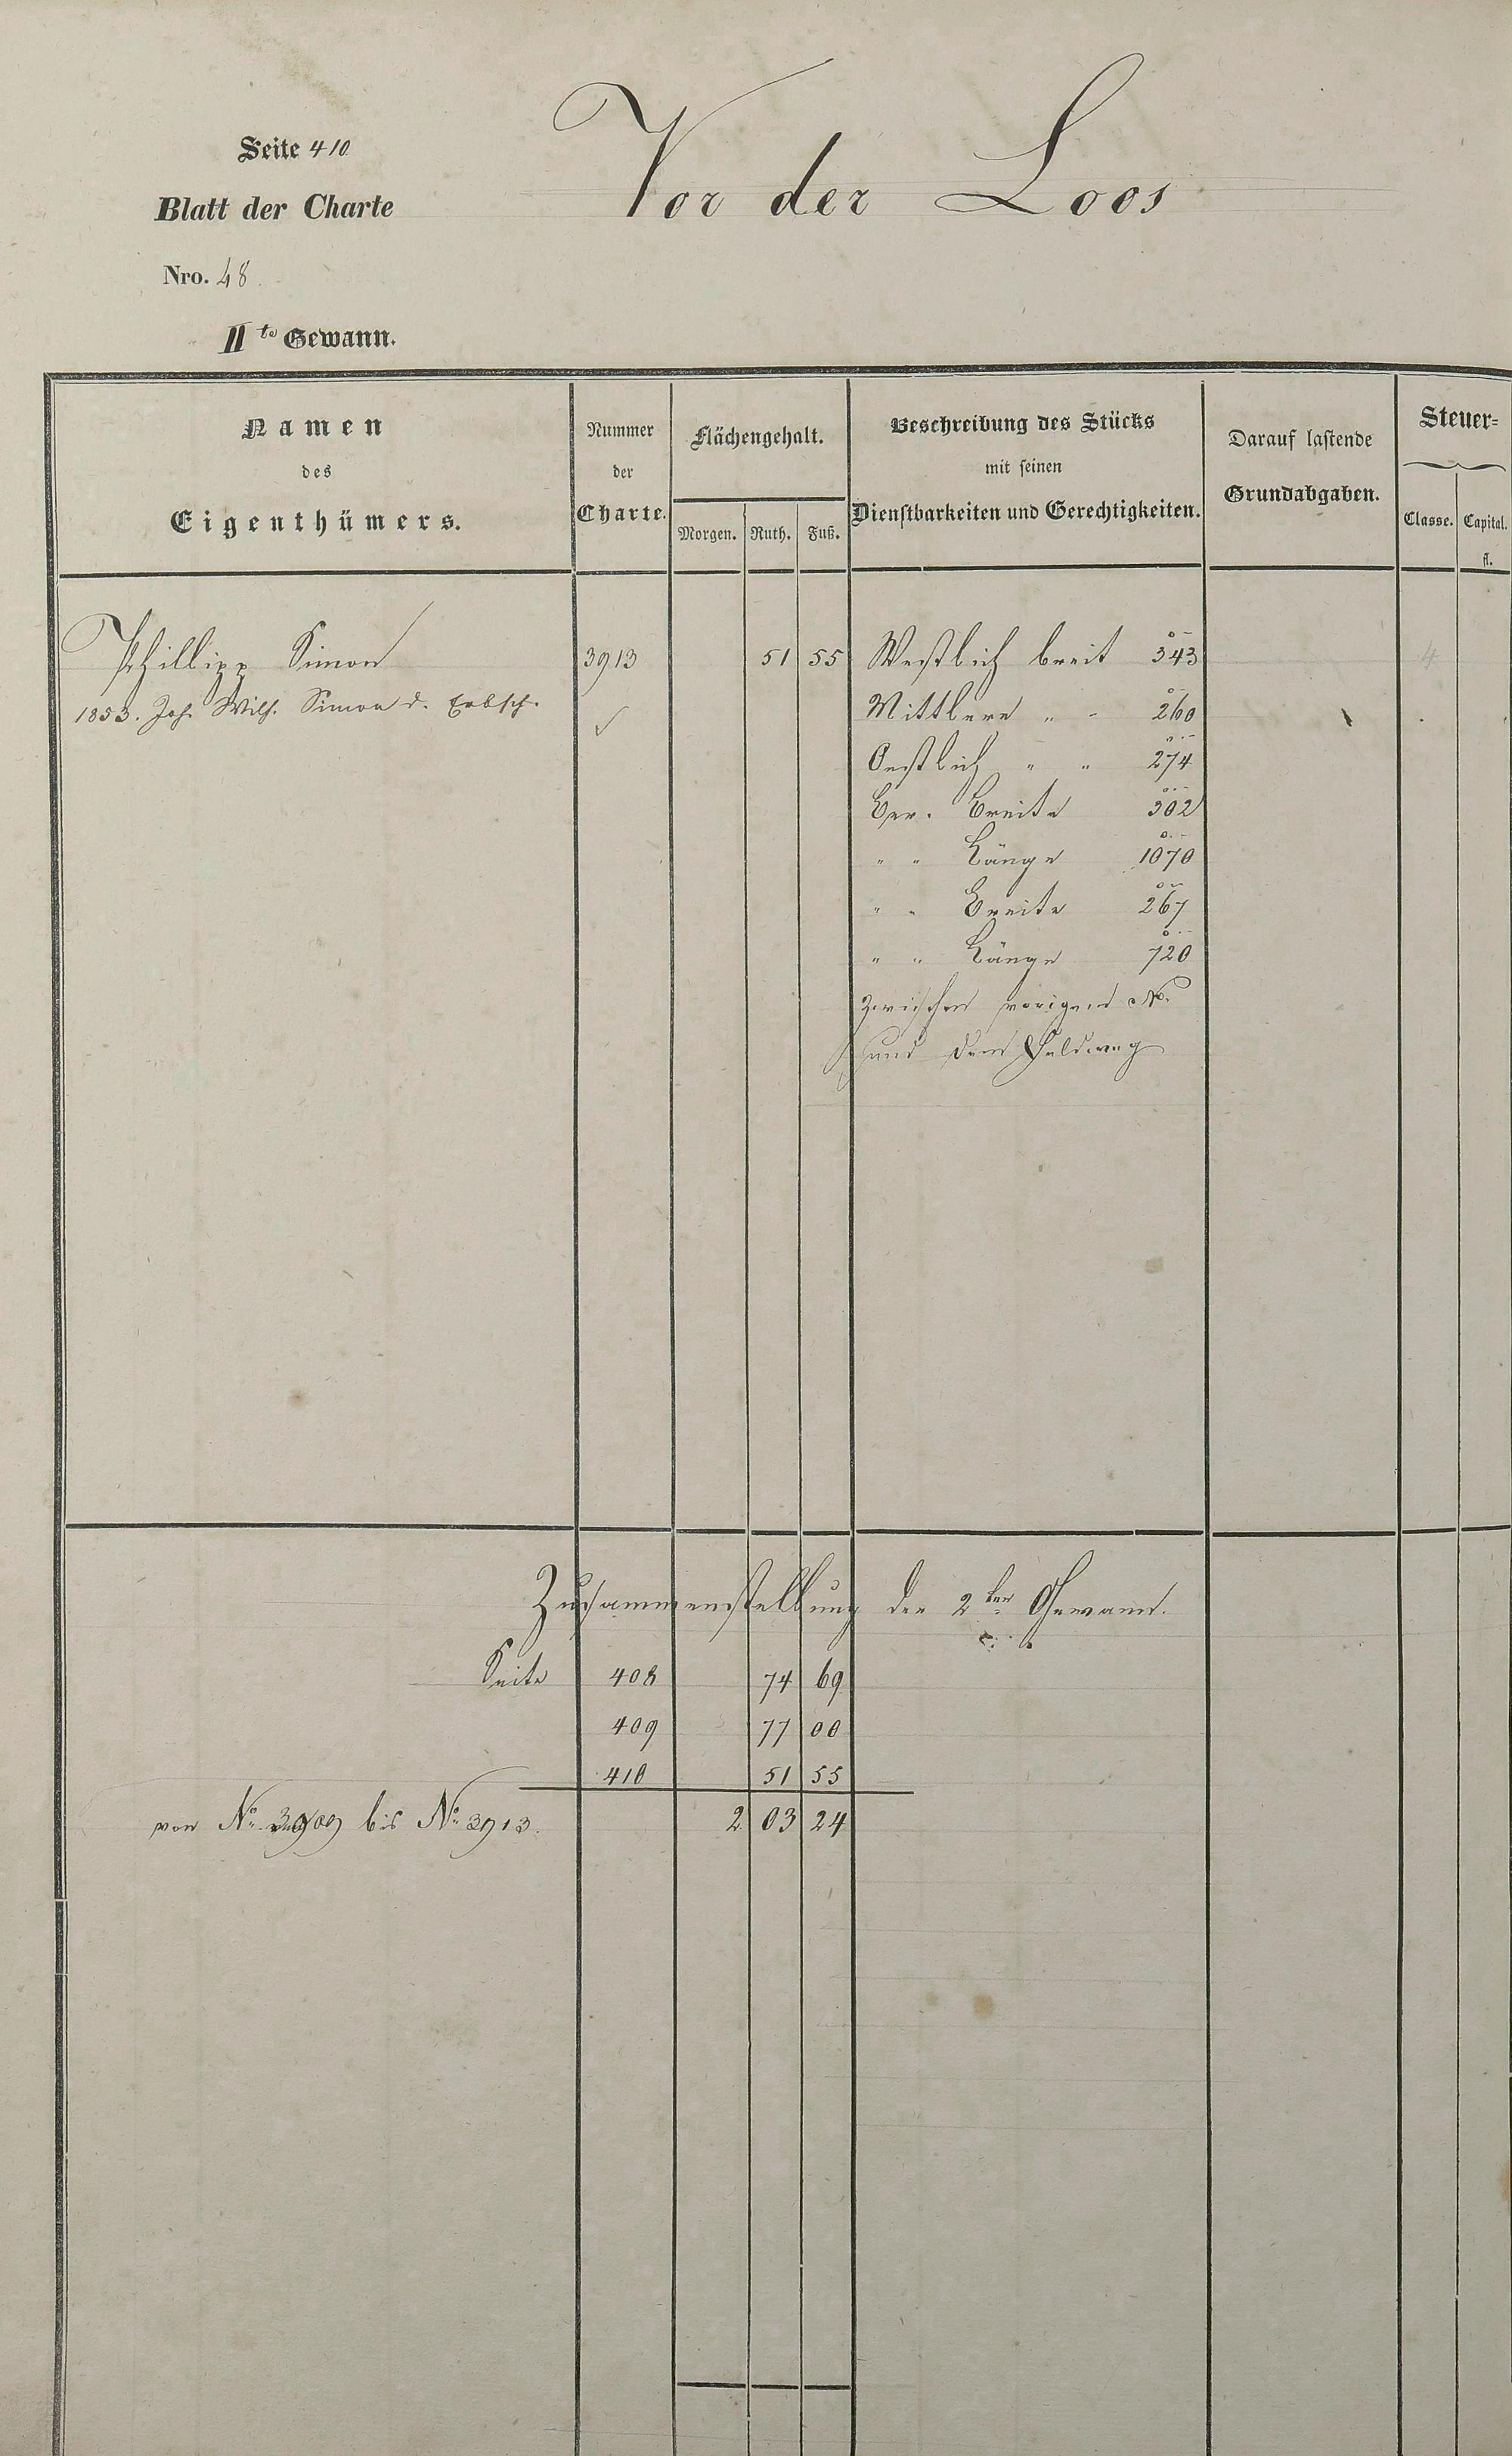 Seite 410
Vor der Loos
Blatt der Charte
Nro. 48
II te Gewann.
Namen
des
Eigenthümers.
Nummer
der
Charte.
Flächengehalt.
Morgen. Ruth. Fuß.
Beschreibung des Stücks
mit seinen
Dienstbarkeiten und Gerechtigkeiten.
Darauf lastende
Grundabgaben.
Steuer-
Classe. Capital.
fl.
Phillipp Simon 3913 51 55 Westlich breit 343 4
1853. Joh. Wilh. Simon d. Erbsch. Mittlere " " 260
Oestlich " " 274
Ger. Breite 302
" " Länge 1070
" " Breite 267
" " Länge 720
zwischen voriger No.
und dem Feldweg
Zusammenstellung der 2ten Gewann.
Seite 408 74 69
409 77 00
410 51 55
von No. 3909 bis No. 3913. 2 03 24